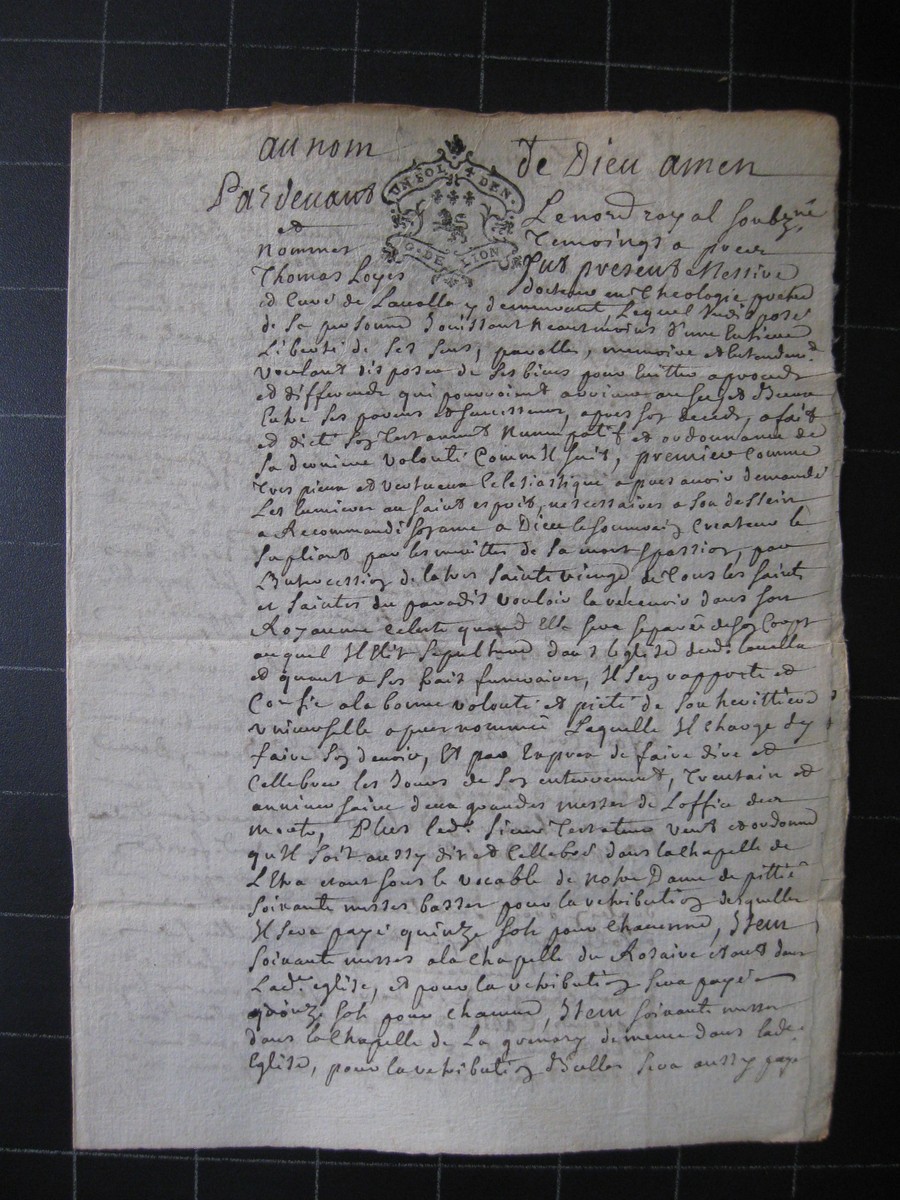 au nom de Dieu amen
UN SOL 4 DEN.
G. DE LION
Pardevant Le no.re royal soubz.né
et temoings a pres
nommes fut present Messire
Thomas Loyes docteur en Theologie prebtre
et Curé de y demeurant, Lequel Indisposé
de sa personne Jouissant neantmoins d'une Entiere
Liberté de ses sens, parolle, memoire et Entendem.t
voulant disposer de ses biens pour Eviter aproces
et differends qui pourroient arriver au sujet d'Iceux
Entre ses parens et successeurs, apres son deceds, a fait
et dict son Testament Nuncupatif et ordonnance de
sa derniere volonté Comm Il suit, premier Comme
Tres pieux et vertueux Eclesiastique apres avoir demandé
Les lumieres au saint esprit, necessaires a son dessein
a Recommandé son ame a Dieu le souverain Createur le
supliant par les merittes de sa mort & passion, par
L'Intercession de la tres sainte vierge de tous les saints
et saintes du paradis vouloir la recevoir dans son
Royaume Celeste quand Elle sera separée de son Corps
auquel Il Elit sepulture dans l'Eglise dud.
et quant a ses frais funeraires, Il s'en rapporte et
Confie a la bonne volonté et pieté de son herittiere
universelle apres nommée Laquelle Il charge d'y
faire son devoir, Et par Expres de faire dire et
Cellebrer les Jours de son enterrement, Trentain et
anniversaire deux grandes messes de L'office des
morts, Plus led. sieur Testateur veut et ordonne
qu'Il soit aussy dit et Cellebré dans la Chapelle de
estant sous le vocable de nostre Dame de pittié
soixante messes basses pour la retribution desquelles
Il sera payé quinze sols pour chacunne, Item
soixante messes a la Chapelle du Rosaire estant dans
Lad. eglise, et pour la retribution sera payé
quinze sols pour chacune, Item soixante messes
dans la Chapelle de La de meme dans lade.
Eglise, pour la retribution d'Icelles sera aussy payé